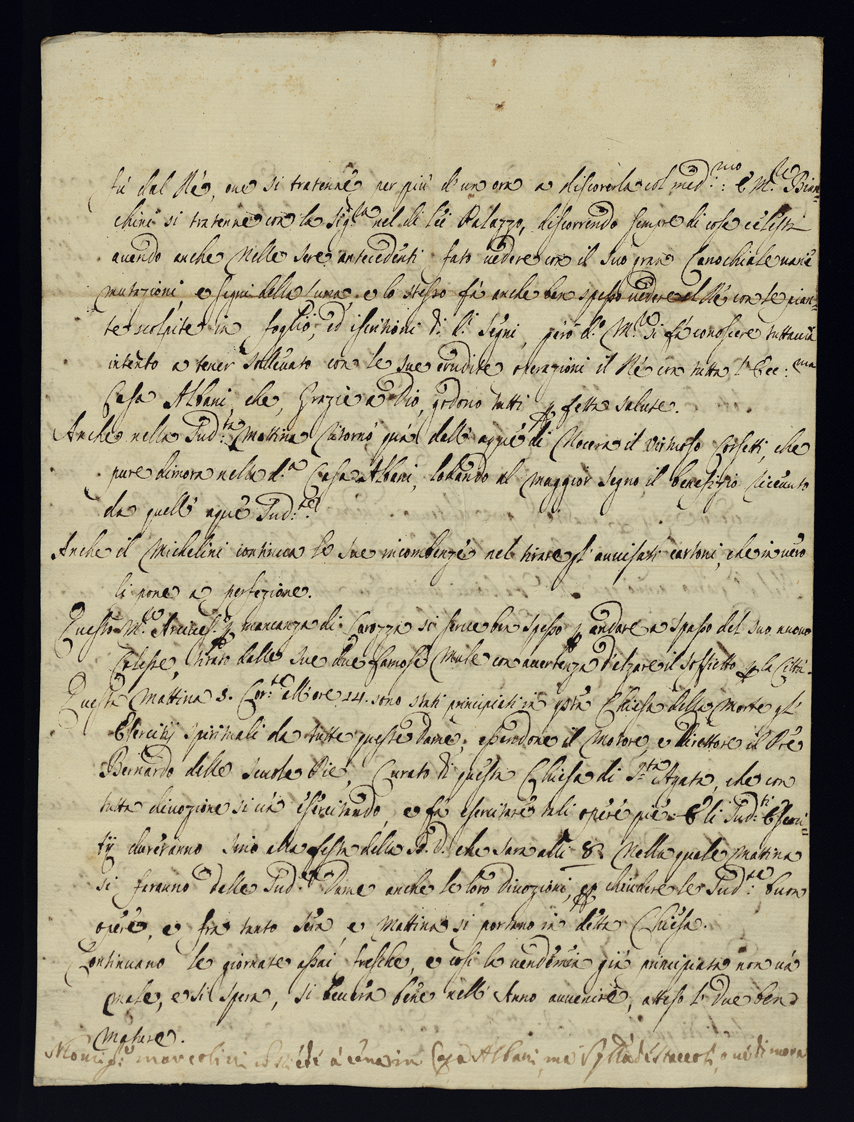 fú dal Ré, oue si tratenne per più d'un ora a discorerla col med:mo: E M.r Bian=
chini si tratenne con la Sig.ra nel di lei Palazzo, discorrendo sempre di cose celesti
auendo anche nelle sere antecedenti fato uedere con il suo gran Canochiale uarie
mutazioni, e segni della Luna e lo stesso fá anche ben spesso uedere al Ré con le pian=
te scolpite in foglio, ed iscrizioni di li segni, peró d.o M.r si fá conoscere tuttauia
intento a tener solleuato con le sue erudite operazioni il Ré con tutta l'Ecc:ma
Casa Albani, che, Grazie a Dio, godono tutti perfetta salute.
Anche nella Sud:ta Mattina ritornó quá dall'acque di Nocera il Virtuoso Corsetti, che
pure dimora nella d.a Casa Albani, lodando al maggior segno il benefizio riceuuto
da quell'acque Sud:te
Anche il Michelini continua le sue incombenze nel tirare gl'auuisati cartoni, che in uero
li pone a perfezione.
Questo M.r Arciues: per mancanza di Carozza si serue ben spesso per andare a spasso del suo nuouo
Calesse, tirato dalle sue due famose Mule con auertenza d'alzare il soffietto per la Cittá.
Questa Mattina 3. Cor:te all'ore 14. sono stati principiati in q̃sta Chiesa della Morte gl'
Esercitij spirituali da tutte queste Dame, essendone il Motore, e Direttore il Pre
Bernardo delle Scuole Pie, Curato di questa Chiesa di S.ta Agata, che con
tutta diuozione si uá esercitando, e fá esercitare tali opere pie. E li Sud:ti Eserci=
tij dureranno sino alla festa della B.V. che sara alli 8. Nella quale mattina
si faranno dalle Sud:te Dame anche le loro Diuozioni, per chiudere le Sud:te buone
opere, e fra tanto sera e Mattina si portano in detta Chiesa.
Continuano le giornate assai fresche, e cosi la uendemia giá principiata non uá
male, e si spera, si beuera bene nell'Anno auuenire, atteso l'Vue ben
mature.
Monsig.r marcolini á cena in Casa Albani, ma di mora